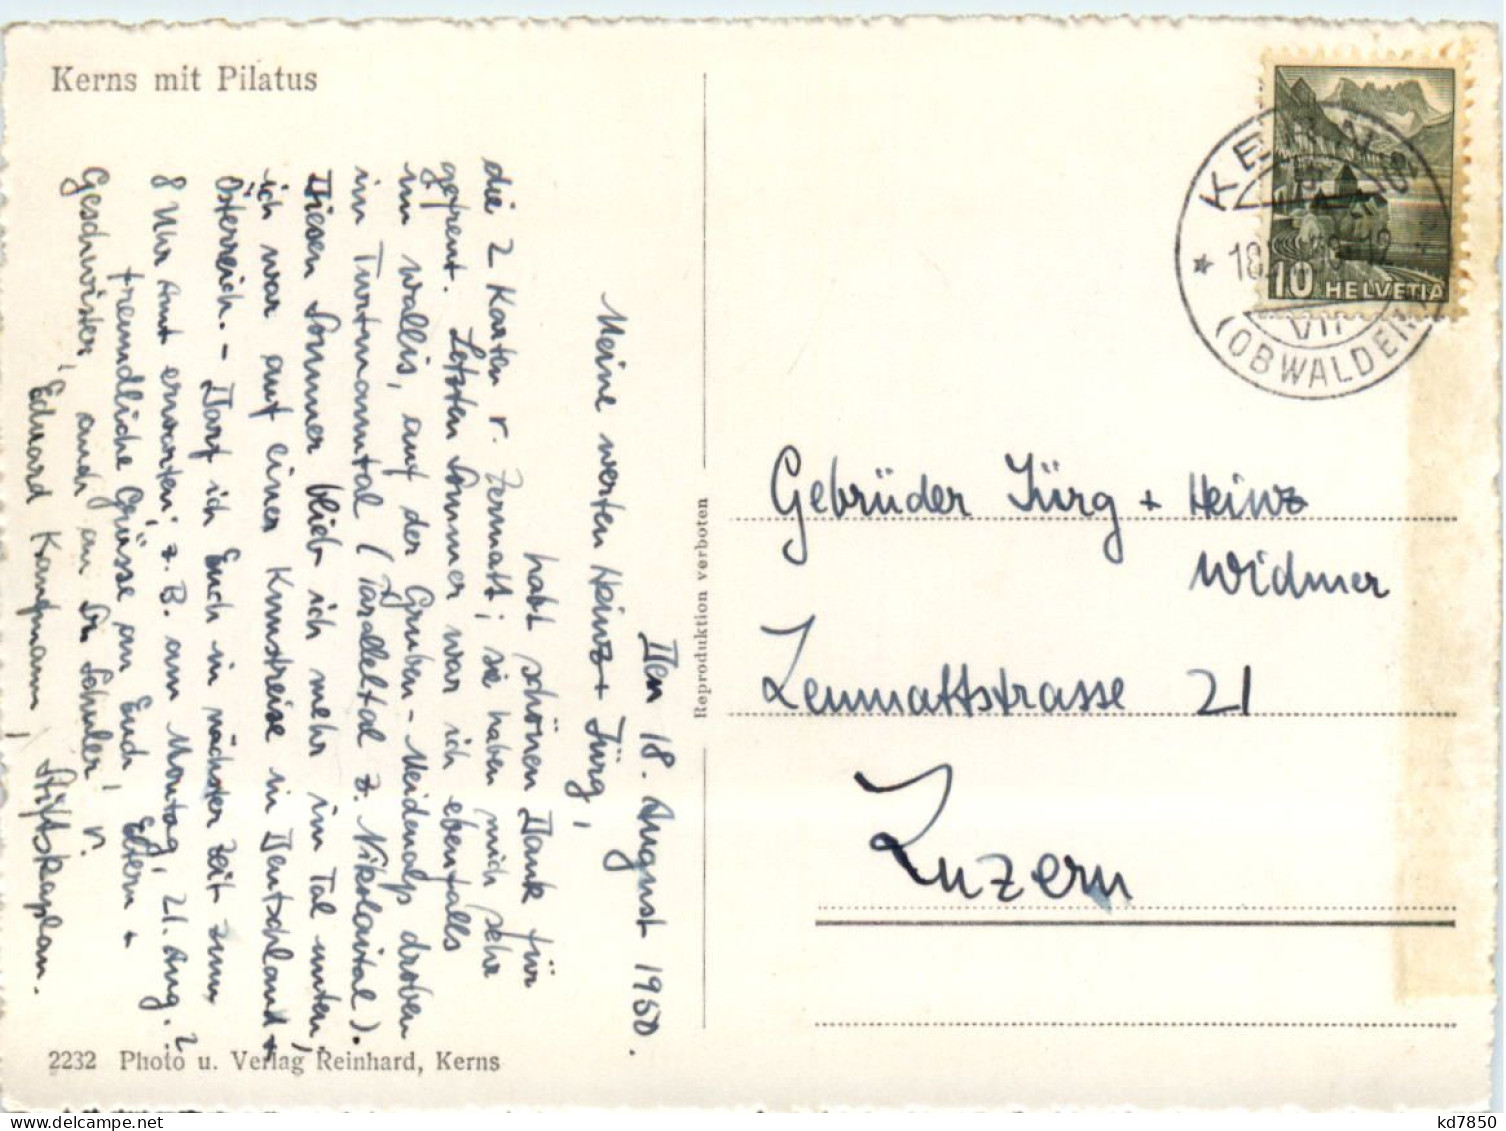 Kerns mit Pilatus
Den 18. August 1950.
Meine werten Heinz + Jürg,
habt schönen Dank für
die 2 Karten v. Zermatt; sie haben mich sehr
gefreut. Letzten Sommer war ich ebenfalls
im Wallis, auf der Gruben-Meidenalp droben
im Turtmanntal (Paralleltal z. Nikolaital).
Diesen Sommer blieb ich mehr im Tal unten,
ich war auf einer Kunstreise in Deutschland +
Österreich. - Darf ich Euch in nächster Zeit zum
8 Uhr Amt erwarten; z. B. am Montag, 21. Aug.?
freundliche Grüsse an Euch, Eltern +
Geschwister, auch an Schuler! v.
Eduard Kaufmann, Stiftskaplan.
2232 Photo u. Verlag Reinhard, Kerns
Reproduktion verboten
KERNS
18. 50-12
VII
(OBWALDEN)
10 HELVETIA
Gebrüder Jürg + Heinz
Widmer
Lenmattstrasse 21
Luzern
kd7850